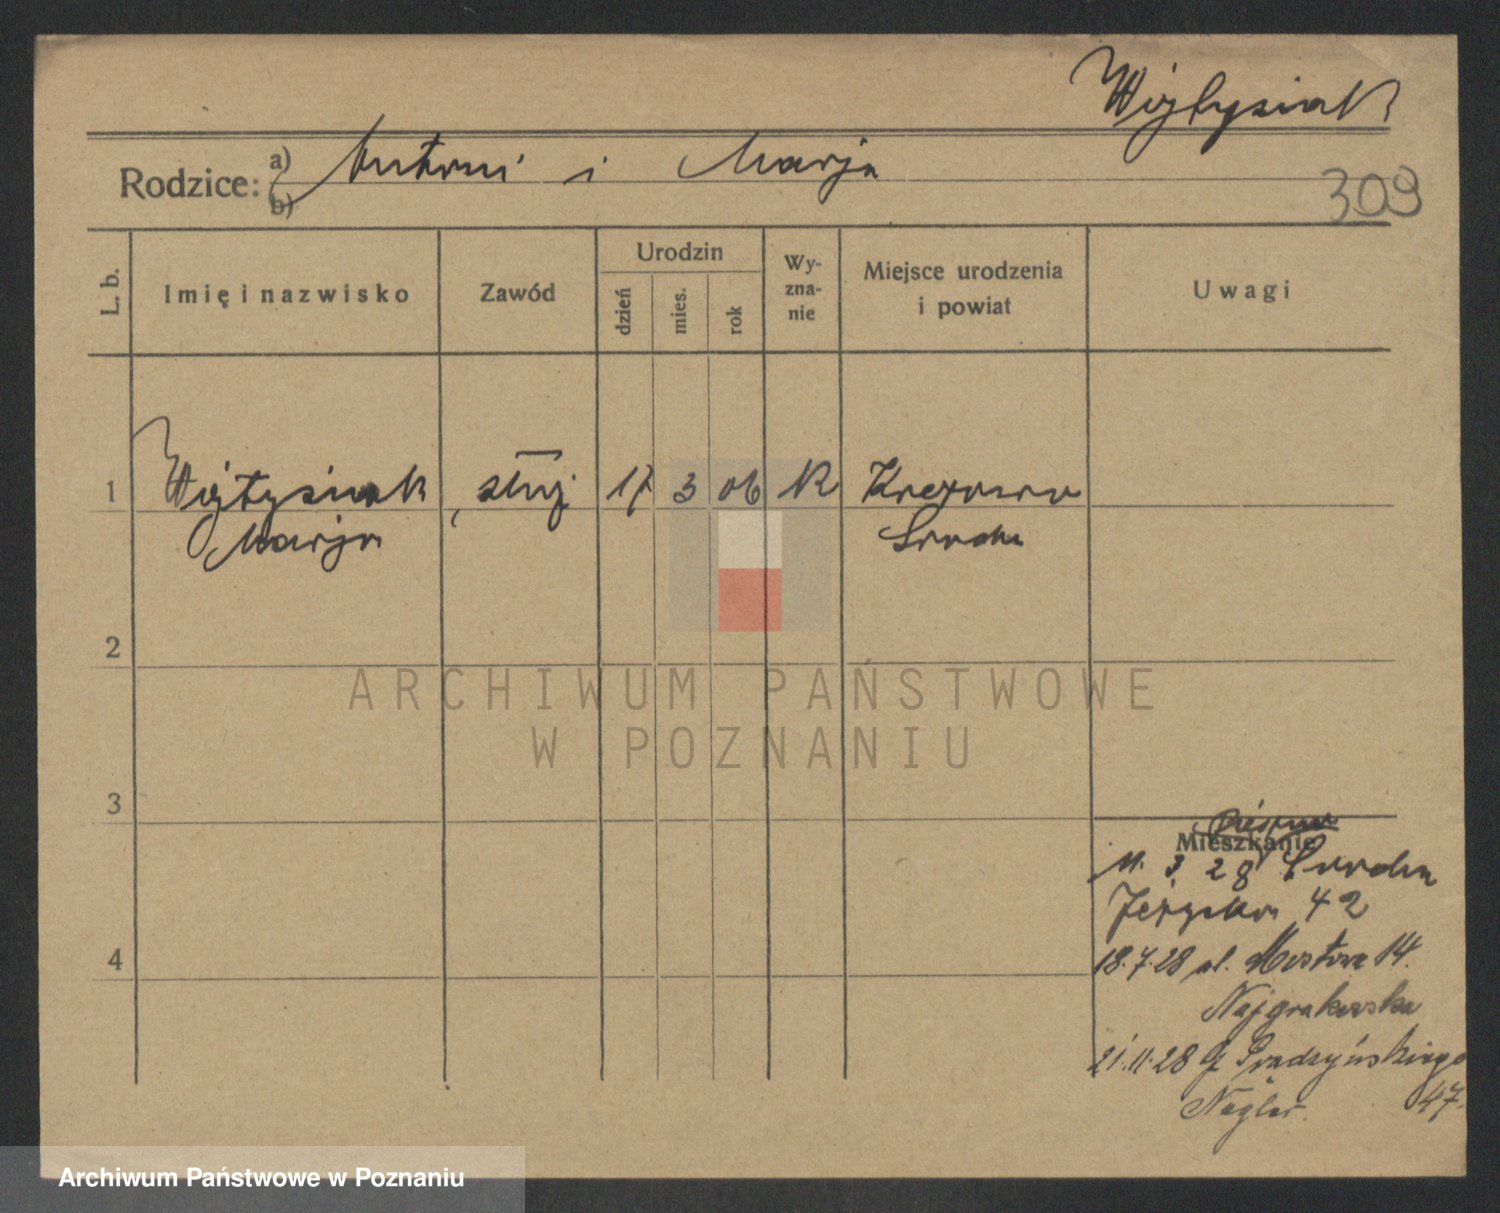 Wojtysiak
Rodzice: a) Antoni i Marja
b)
309
L. b.
Imię i nazwisko
Zawód
Urodzin
dzień
mies.
rok
Wy-
zna-
nie
Miejsce urodzenia
i powiat
Uwagi
1
Wojtysiak służ 17 3 06 K
Marja Środa
2
ARCHIWUM PAŃSTWOWE
W POZNANIU
3
Mieszkanie
11. 3 28 Środa
42
18.7.28 ul. Mostowa 14.
Najgrakowska
21.11.28 Prądzyńskiego
47.
4
Archiwum Państwowe w Poznaniu